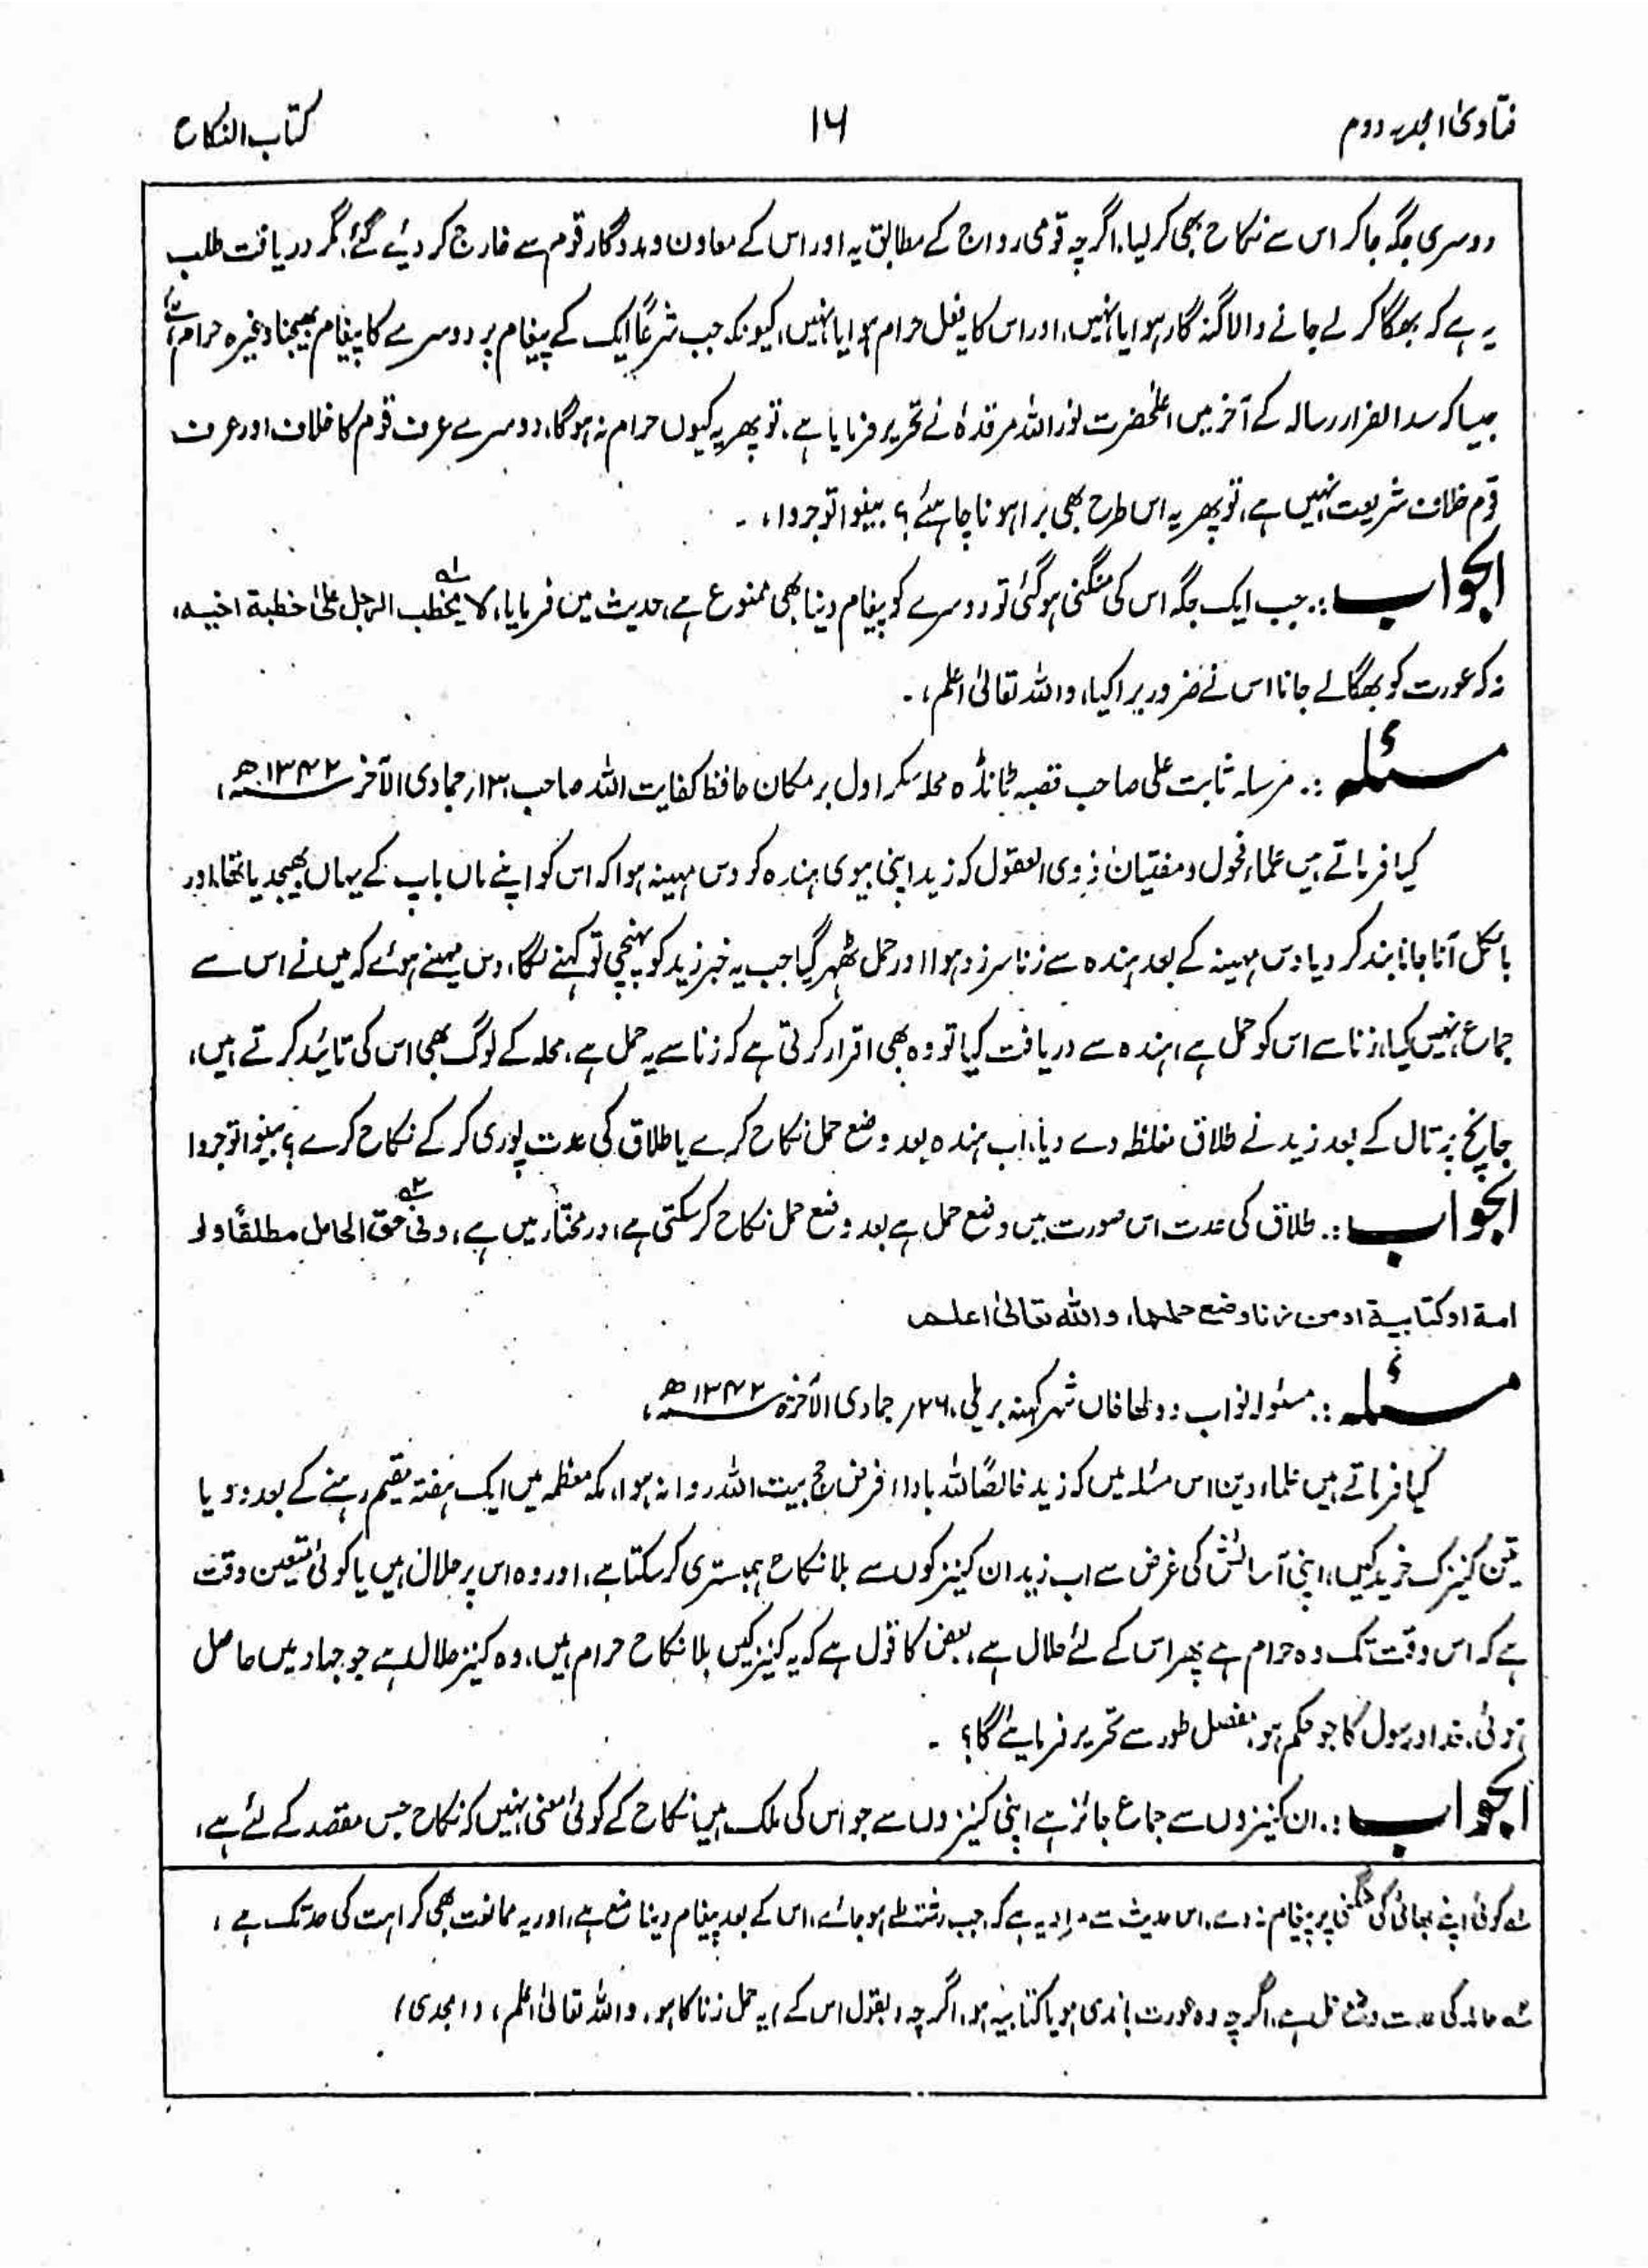 فتاویٰ امجدیہ دوم
۱۶
کتاب النکاح
دوسری جگہ جا کر اس سے نکاح بھی کر لیا، اگرچہ قومی رواج کے مطابق یہ اور اس کے معاون و مددگار قوم سے خارج کر دیئے گئے، مگر دریافت طلب
یہ ہے کہ بھگا کر لے جانے والا گنہ گار ہوا یا نہیں، اور اس کا یہ فعل حرام ہوا یا نہیں، کیونکہ جب شرعاً ایک کے پیغام پر دوسرے کا پیغام بھیجنا وغیرہ حرام ہے،
جیسا کہ سد الفرار رسالہ کے آخر میں اعلیٰحضرت نور اللہ مرقدہٗ نے تحریر فرمایا ہے، تو پھر یہ کیوں حرام نہ ہوگا، دوسرے عرف قوم کا خلاف اور عرف
قوم خلاف شریعت نہیں ہے، تو پھر یہ اس طرح بھی برا ہونا چاہئے؟ بینوا توجروا، ۔
الجواب :. جب ایک جگہ اس کی منگنی ہو گئی تو دوسرے کو پیغام دینا بھی ممنوع ہے، حدیث میں فرمایا، لا یخطب الرجل علیٰ خطبة اخیه، ۱ہ
نہ کہ عورت کو بھگا لے جانا اس نے ضرور برا کیا، واللہ تعالیٰ اعلم، ۔
مسئلہ :. مرسلہ ثابت علی صاحب قصبہ ٹانڈہ محلہ سکراول بر مکان حافظ کفایت اللہ صاحب، ۱۳ر جمادی الآخر ۱۳۴۲ھ،
کیا فرماتے ہیں علماء فحول و مفتیان ذوی العقول کہ زید اپنی بیوی ہندہ کو دس مہینہ ہوا کہ اس کو اپنے ماں باپ کے یہاں بھیجدیا تھا، اور
بالکل آنا جانا بند کر دیا دس مہینہ کے بعد ہندہ سے زنا سرزد ہوا اور حمل ٹھہر گیا جب یہ خبر زید کو پہنچی تو کہنے لگا، دس مہینے ہوئے کہ میں نے اس سے
جماع نہیں کیا، زنا سے اس کو حمل ہے، ہندہ سے دریافت کیا تو وہ بھی اقرار کرتی ہے کہ زنا سے یہ حمل ہے، محلہ کے لوگ بھی اس کی تائید کرتے ہیں،
جانچ پرتال کے بعد زید نے طلاق مغلظہ دے دیا، اب ہندہ بعد وضع حمل نکاح کرے یا طلاق کی عدت پوری کر کے نکاح کرے؟ بینوا توجروا
الجواب :. طلاق کی عدت اس صورت میں وضع حمل ہے بعد وضع حمل نکاح کر سکتی ہے، در مختار میں ہے، وفی حق الحامل مطلقًا ولو ۲ہ
امة او کتابیة او من زنا وضع حملها، واللہ تعالیٰ اعلم
مسئلہ :. مسئولہ نواب دولھا خاں شہر کہنہ بریلی، ۲۶ر جمادی الآخرہ ۱۳۴۲ھ،
کیا فرماتے ہیں علماء دین اس مسئلہ میں کہ زید خالصًا للہ باداء فرض حج بیت اللہ روانہ ہوا، مکہ معظمہ میں ایک ہفتہ مقیم رہنے کے بعد دو یا
تین کنیزک خرید کیں، اپنی آسائش کی غرض سے اب زید ان کنیزکوں سے بلا نکاح ہمبستری کر سکتا ہے، اور وہ اس پر حلال ہیں یا کوئی متعین وقت
ہے کہ اس وقت تک وہ حرام ہے پھر اس کے لئے حلال ہے، بعض کا قول ہے کہ یہ کنیزکیں بلا نکاح حرام ہیں، وہ کنیز حلال ہے جو جہاد میں حاصل
ہوئی، خدا و رسول کا جو حکم ہو، مفصل طور سے تحریر فرمائیے گا؟ ۔
الجواب :. ان کنیزوں سے جماع جائز ہے اپنی کنیزوں سے جو اس کی ملک ہیں نکاح کے کوئی معنی نہیں کہ نکاح جس مقصد کے لئے ہے،
۱ہ کوئی اپنے بھائی کی منگنی پر پیغام نہ دے، اس حدیث سے مراد یہ ہے کہ، جب رشتہ طے ہو جائے، اس کے بعد پیغام دینا منع ہے، اور یہ ممانعت بھی کراہت کی حد تک ہے،
۲ہ حاملہ کی عدت وضع حمل ہے، اگرچہ وہ عورت باندی ہو یا کتابیہ ہو، اگرچہ (بقول اس کے) یہ حمل زنا کا ہو، واللہ تعالیٰ اعلم، (امجدی)